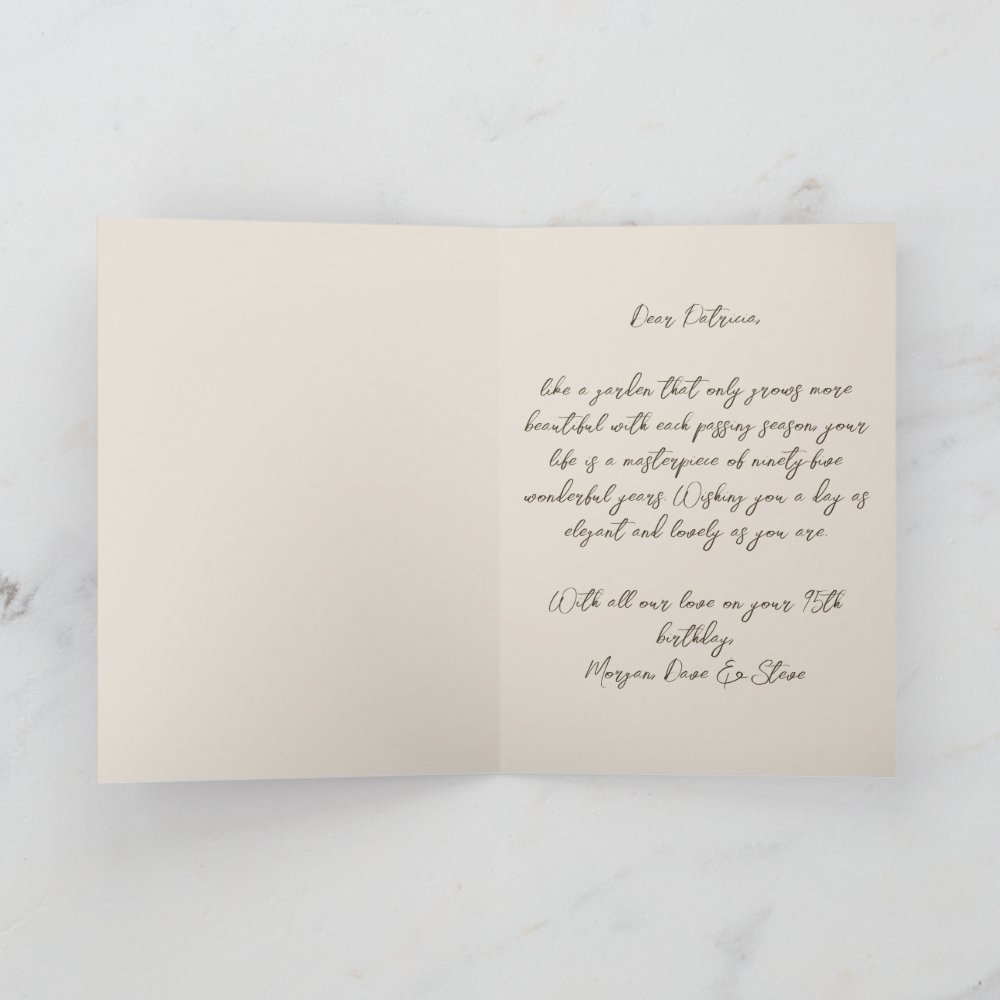 Dear Patricia,
like a garden that only grows more
beautiful with each passing season, your
life is a masterpiece of ninety-five
wonderful years. Wishing you a day as
elegant and lovely as you are.
With all our love on your 95th
birthday,
Morgan, Dave & Steve